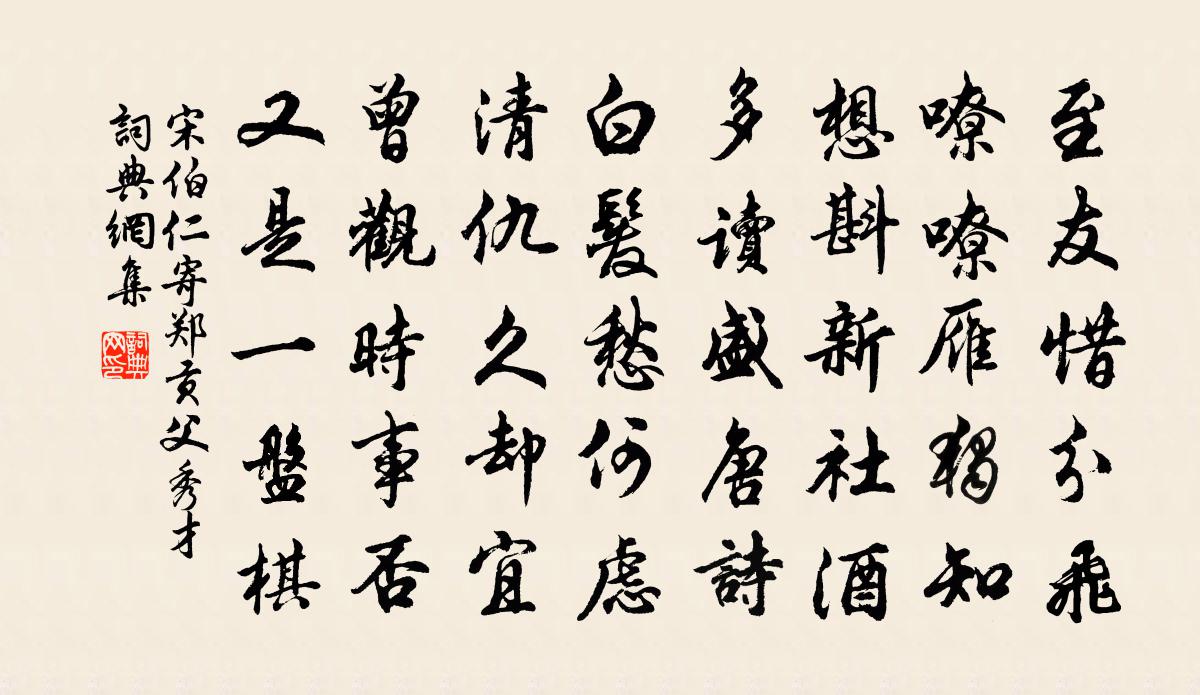 至友惜分飛
嘹嘹雁獨知
想斟新社酒
多讀盛唐詩
白髮愁何慮
清仇久却宜
曾觀時事否
又是一盤棋
宋伯仁寄郑贡父秀才
詞典網集
詞典
网印